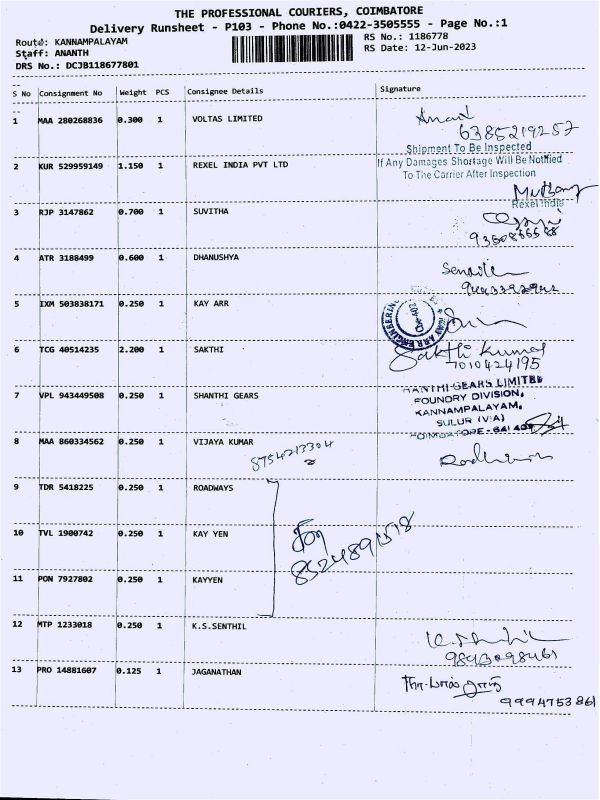 THE PROFESSIONAL COURIERS, COIMBATORE
Delivery Runsheet - P103 - Phone No.:0422-3505555 - Page No.:1
Route: KANNAMPALAYAM
RS No.: 1186778
Staff: ANANTH
RS Date: 12-Jun-2023
DRS No.: DCJB118677801
S No Consignment No Weight PCS Consignee Details Signature
1 MAA 280268836 0.300 1 VOLTAS LIMITED
6385219257
Shipment To Be Inspected
If Any Damages Shortage Will Be Notified
To The Carrier After Inspection
2 KUR 529959149 1.150 1 REXEL INDIA PVT LTD
Rexel India
3 RJP 3147862 0.700 1 SUVITHA
4 ATR 3188499 0.600 1 DHANUSHYA
5 IXM 503838171 0.250 1 KAY ARR
6 TCG 40514235 2.200 1 SAKTHI
Sakthi Kumar
7010424195
7 VPL 943449508 0.250 1 SHANTHI GEARS
SHANTHI GEARS LIMITED
FOUNDRY DIVISION,
KANNAMPALAYAM,
SULUR (VIA)
8 MAA 860334562 0.250 1 VIJAYA KUMAR
8754213304
9 TDR 5418225 0.250 1 ROADWAYS
10 TVL 1900742 0.250 1 KAY YEN
11 PON 7927802 0.250 1 KAYYEN
12 MTP 1233018 0.250 1 K.S.SENTHIL
9843098461
13 PRO 14881607 0.125 1 JAGANATHAN
9994753861